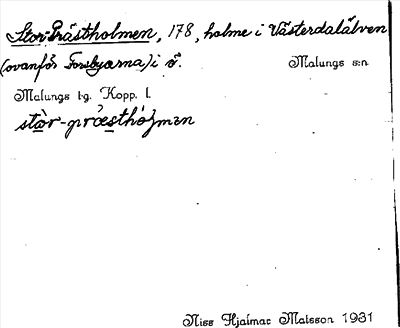 Stor Prästholmen, 178, holme i Västerdalälven
(ovanför Forsbyarna) i ö. Malungs s:n
Malungs tg. Kopp. l.
stòr-præsthòɫmεn
Niss Hjalmar Matsson 1931